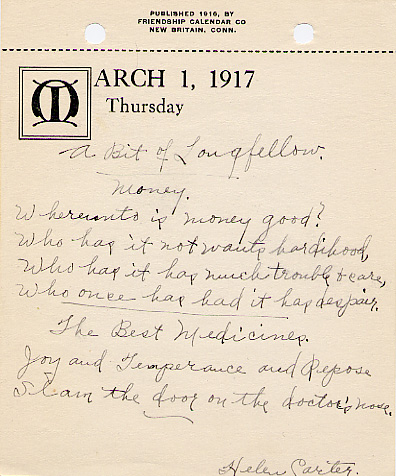 PUBLISHED 1916, BY
FRIENDSHIP CALENDAR CO
NEW BRITAIN, CONN.
MARCH 1, 1917
Thursday
A Bit of Longfellow.
Money.
Whereunto is money good?
Who has it not wants hardihood,
Who has it has much trouble & care,
Who once has had it has despair.
The Best Medicines.
Joy and Temperance and Repose
Slam the door on the doctor's nose.
Helen Carter.